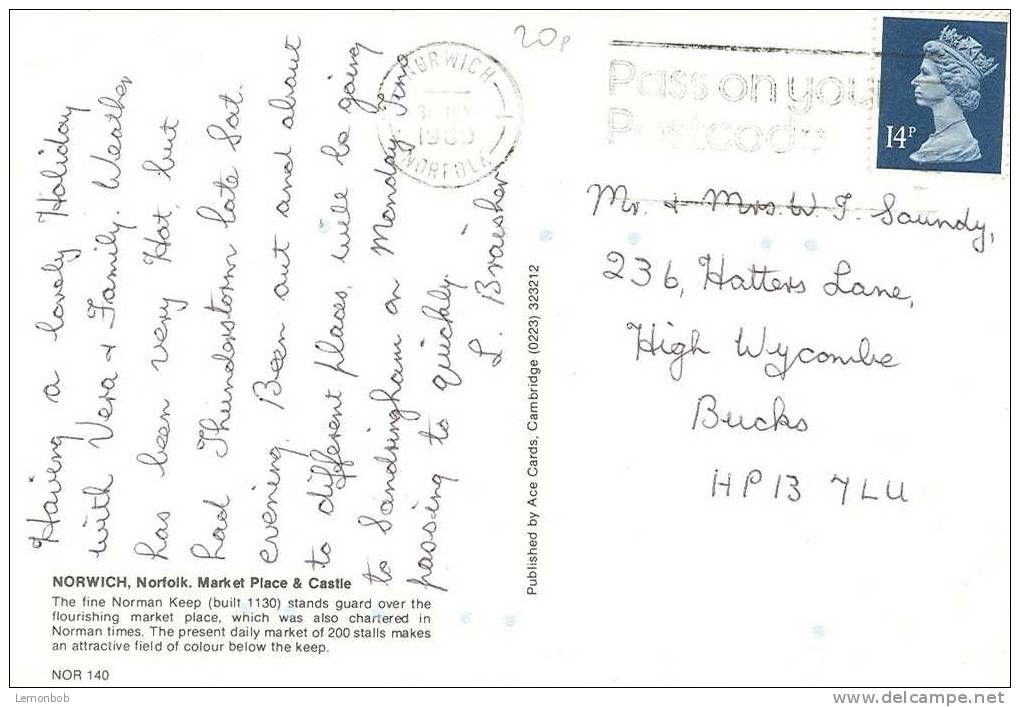 Having a lovely Holiday
with Vera & Family. Weather
has been very Hot, but
had Thunderstorm late Sat.
evening. Been out and about
to different places, will be going
to Sandringham on Monday. Time
passing to quickly.
L. Braisher
NORWICH, Norfolk. Market Place & Castle
The fine Norman Keep (built 1130) stands guard over the
flourishing market place, which was also chartered in
Norman times. The present daily market of 200 stalls makes
an attractive field of colour below the keep.
NOR 140
Published by Ace Cards, Cambridge (0223) 323212
20p
NORWICH
NORFOLK
Pass on your
Postcode
14P
Mr. & Mrs. W. F. Saundy,
236, Hatters Lane,
High Wycombe
Bucks
HP13 7LU
Lemonbob
www.delcampe.net